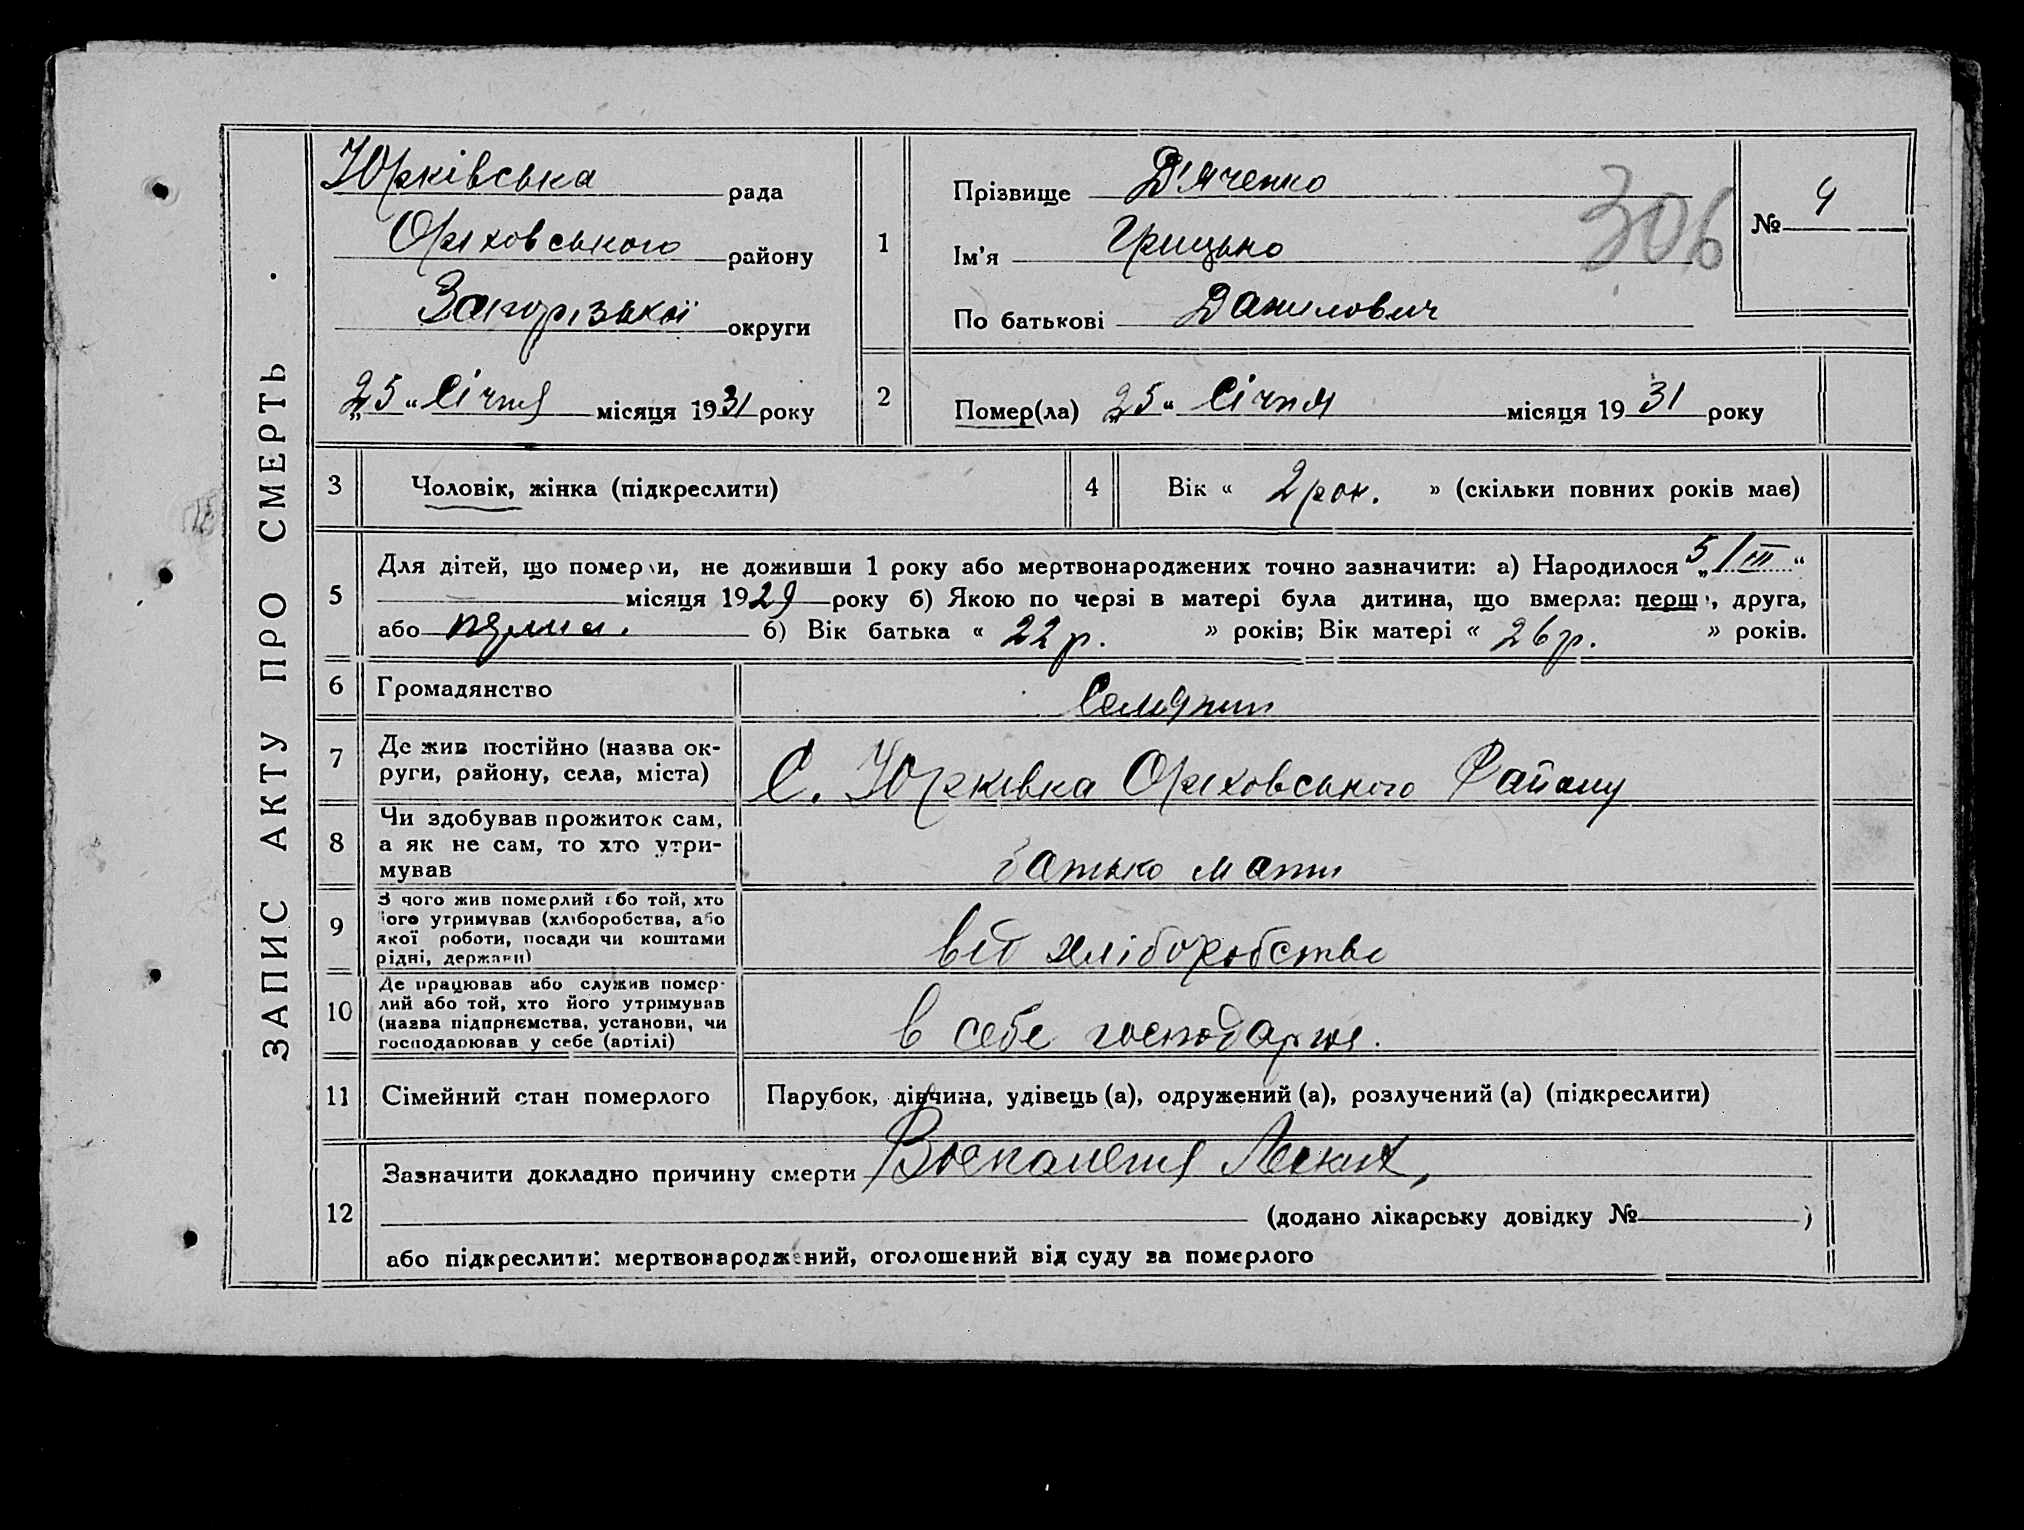 ЗАПИС АКТУ ПРО СМЕРТЬ.
Юрківська рада
Оріховського району
Запорізької округи
„25“ Січня місяця 1931 року
1
Прізвище Д'яченко
Ім'я Грицько
По батькові Данилович
306
№ 4
2
Помер(ла) „25“ Січня місяця 1931 року
3 Чоловік, жінка (підкреслити)
4 Вік « 2 рок. » (скільки повних років має)
5
Для дітей, що померли, не доживши 1 року або мертвонароджених точно зазначити: а) Народилося „5/III“
місяця 1929 року б) Якою по черзі в матері була дитина, що вмерла: перша, друга,
або б) Вік батька « 22 р. » років; Вік матері « 26 р. » років.
6 Громадянство Селянин
7
Де жив постійно (назва ок-
руги, району, села, міста)
С. Юрківка Оріховського Району
8
Чи здобував прожиток сам,
а як не сам, то хто утри-
мував
батько мати
9
З чого жив померлий або той, хто
його утримував (хліборобства, або
якої роботи, посади чи коштами
рідні, держави)
від хліборобства
10
Де працював або служив помер-
лий або той, хто його утримував
(назва підприємства, установи, чи
господарював у себе (артілі)
в себе
11 Сімейний стан померлого
Парубок, дівчина, удівець (а), одружений (а), розлучений (а) (підкреслити)
12
Зазначити докладно причину смерти Воспаления Легких,
(додано лікарську довідку № )
або підкреслити: мертвонароджений, оголошений від суду за померлого